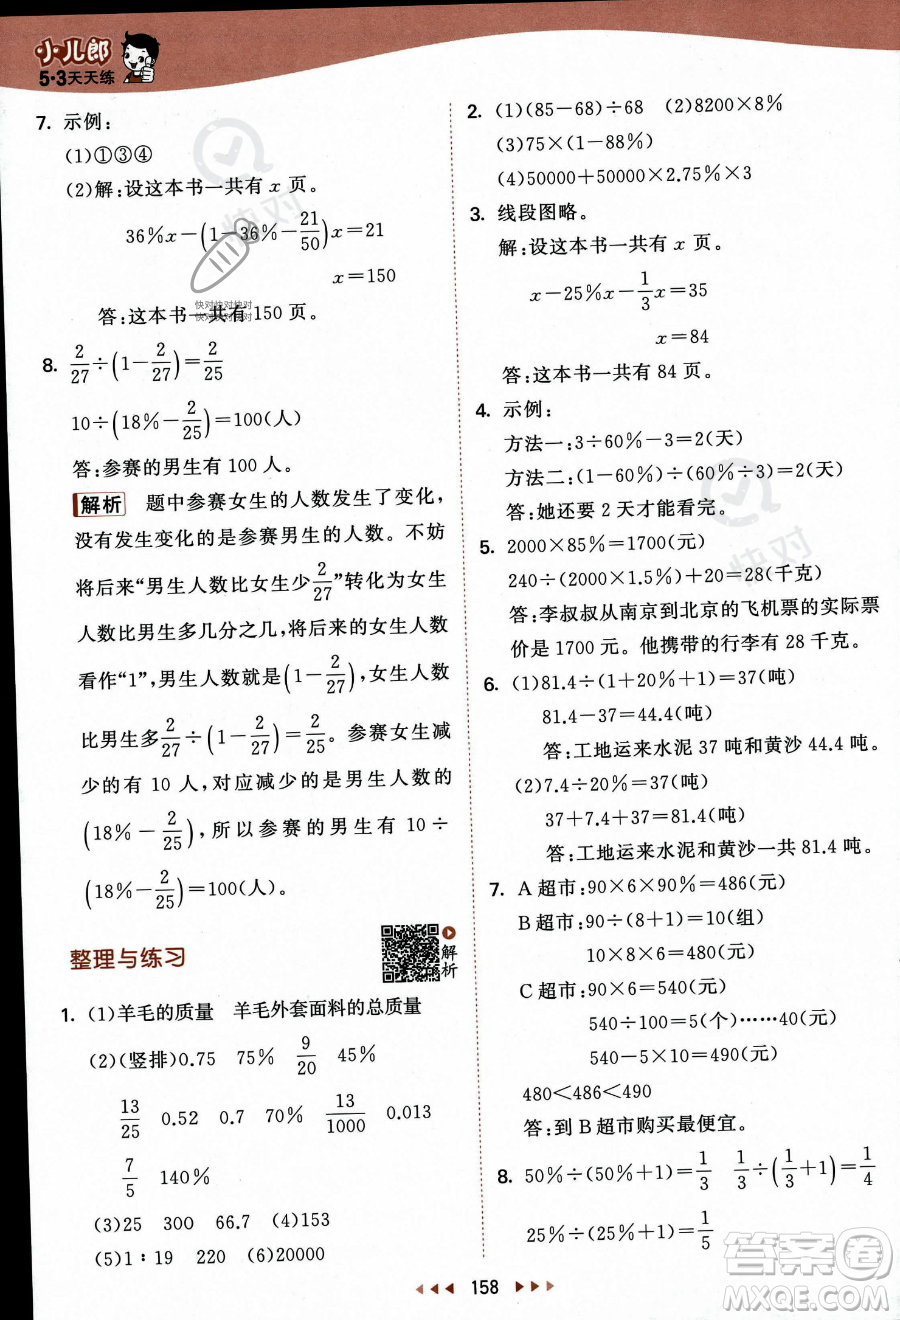 小儿郎
5·3天天练
7. 示例：
(1)①③④
(2)解：设这本书一共有 x 页。
36%x－(1－36%－21/50)x＝21
x＝150
答：这本书一共有 150 页。
快对快对快对
快对快对快对
8. 2/27÷(1－2/27)＝2/25
10÷(18%－2/25)＝100(人)
答：参赛的男生有 100 人。
解析 题中参赛女生的人数发生了变化，
没有发生变化的是参赛男生的人数。不妨
将后来“男生人数比女生少2/27”转化为女生
人数比男生多几分之几，将后来的女生人数
看作“1”，男生人数就是(1－2/27)，女生人数
比男生多2/27÷(1－2/27)＝2/25。参赛女生减
少的有 10 人，对应减少的是男生人数的
(18%－2/25)，所以参赛的男生有 10÷
(18%－2/25)＝100(人)。
整理与练习
解析
1. (1)羊毛的质量 羊毛外套面料的总质量
(2)(竖排)0.75 75% 9/20 45%
13/25 0.52 0.7 70% 13/1000 0.013
7/5 140%
(3)25 300 66.7 (4)153
(5)1∶19 220 (6)20000
2. (1)(85－68)÷68 (2)8200×8%
(3)75×(1－88%)
(4)50000＋50000×2.75%×3
3. 线段图略。
解：设这本书一共有 x 页。
x－25%x－1/3x＝35
x＝84
答：这本书一共有 84 页。
4. 示例：
方法一：3÷60%－3＝2(天)
方法二：(1－60%)÷(60%÷3)＝2(天)
答：她还要 2 天才能看完。
5. 2000×85%＝1700(元)
240÷(2000×1.5%)＋20＝28(千克)
答：李叔叔从南京到北京的飞机票的实际票
价是 1700 元。他携带的行李有 28 千克。
6. (1)81.4÷(1＋20%＋1)＝37(吨)
81.4－37＝44.4(吨)
答：工地运来水泥 37 吨和黄沙 44.4 吨。
(2)7.4÷20%＝37(吨)
37＋7.4＋37＝81.4(吨)
答：工地运来水泥和黄沙一共 81.4 吨。
7. A 超市：90×6×90%＝486(元)
B 超市：90÷(8＋1)＝10(组)
10×8×6＝480(元)
C 超市：90×6＝540(元)
540÷100＝5(个)……40(元)
540－5×10＝490(元)
480＜486＜490
答：到 B 超市购买最便宜。
8. 50%÷(50%＋1)＝1/3 1/3÷(1/3＋1)＝1/4
25%÷(25%＋1)＝1/5
158
快对
快对
答案圈
MXQE.COM